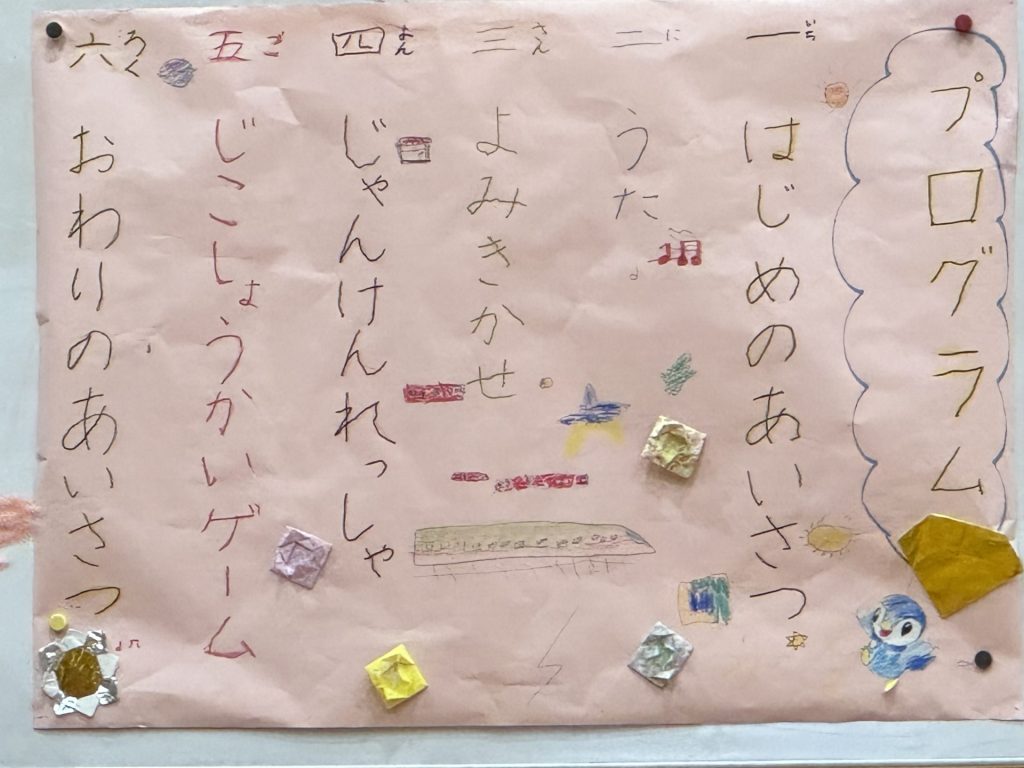 プログラム
一 いち はじめのあいさつ
二 に うた
三 さん よみきかせ
四 よん じゃんけんれっしゃ
五 ご じこしょうかいゲーム
六 ろく おわりのあいさつ